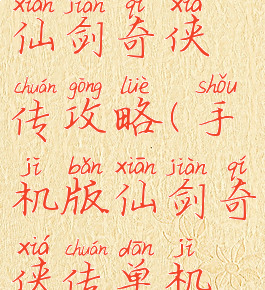 xiān jiàn qí xiá
仙剑奇侠
chuán gōng lüè shǒu
传攻略(手
jī bǎn xiān jiàn qí
机版仙剑奇
xiá chuán dān jī
侠传单机